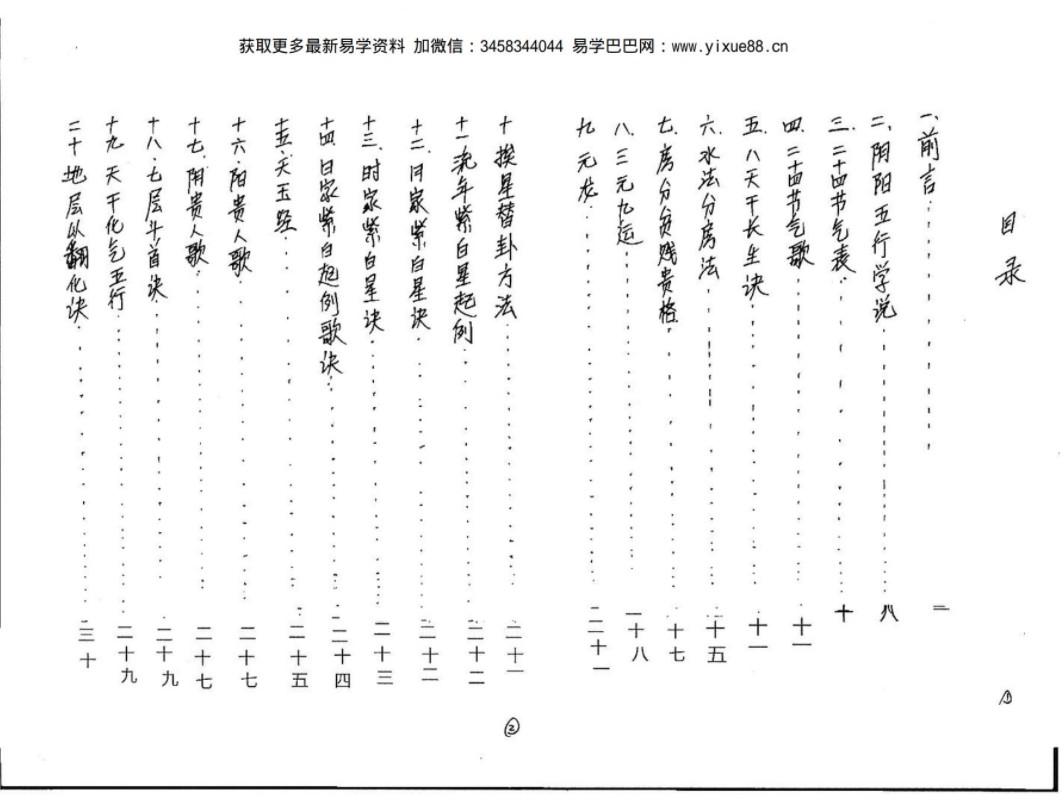 获取更多最新易学资料 加微信：3458344044 易学巴巴网：www.yixue88.cn
目录
一、前言 二
二、阴阳五行学说 八
三、二十四节气表 十
四、二十四节气歌 十一
五、八天干长生诀 十一
六、水法分房法 十五
七、房分贫贱贵格 十七
八、三元九运 一十八
九、元龙 二十一
十、挨星替卦方法 二十一
十一、流年紫白星起例 二十二
十二、月家紫白星诀 二十二
十三、时家紫白星诀 二十三
十四、日家紫白起例歌诀 二十四
十五、天玉经 二十五
十六、阳贵人歌 二十七
十七、阴贵人歌 二十七
十八、七层斗首诀 二十九
十九、天干化气五行 二十九
二十地层以翻化诀 三十
①
②